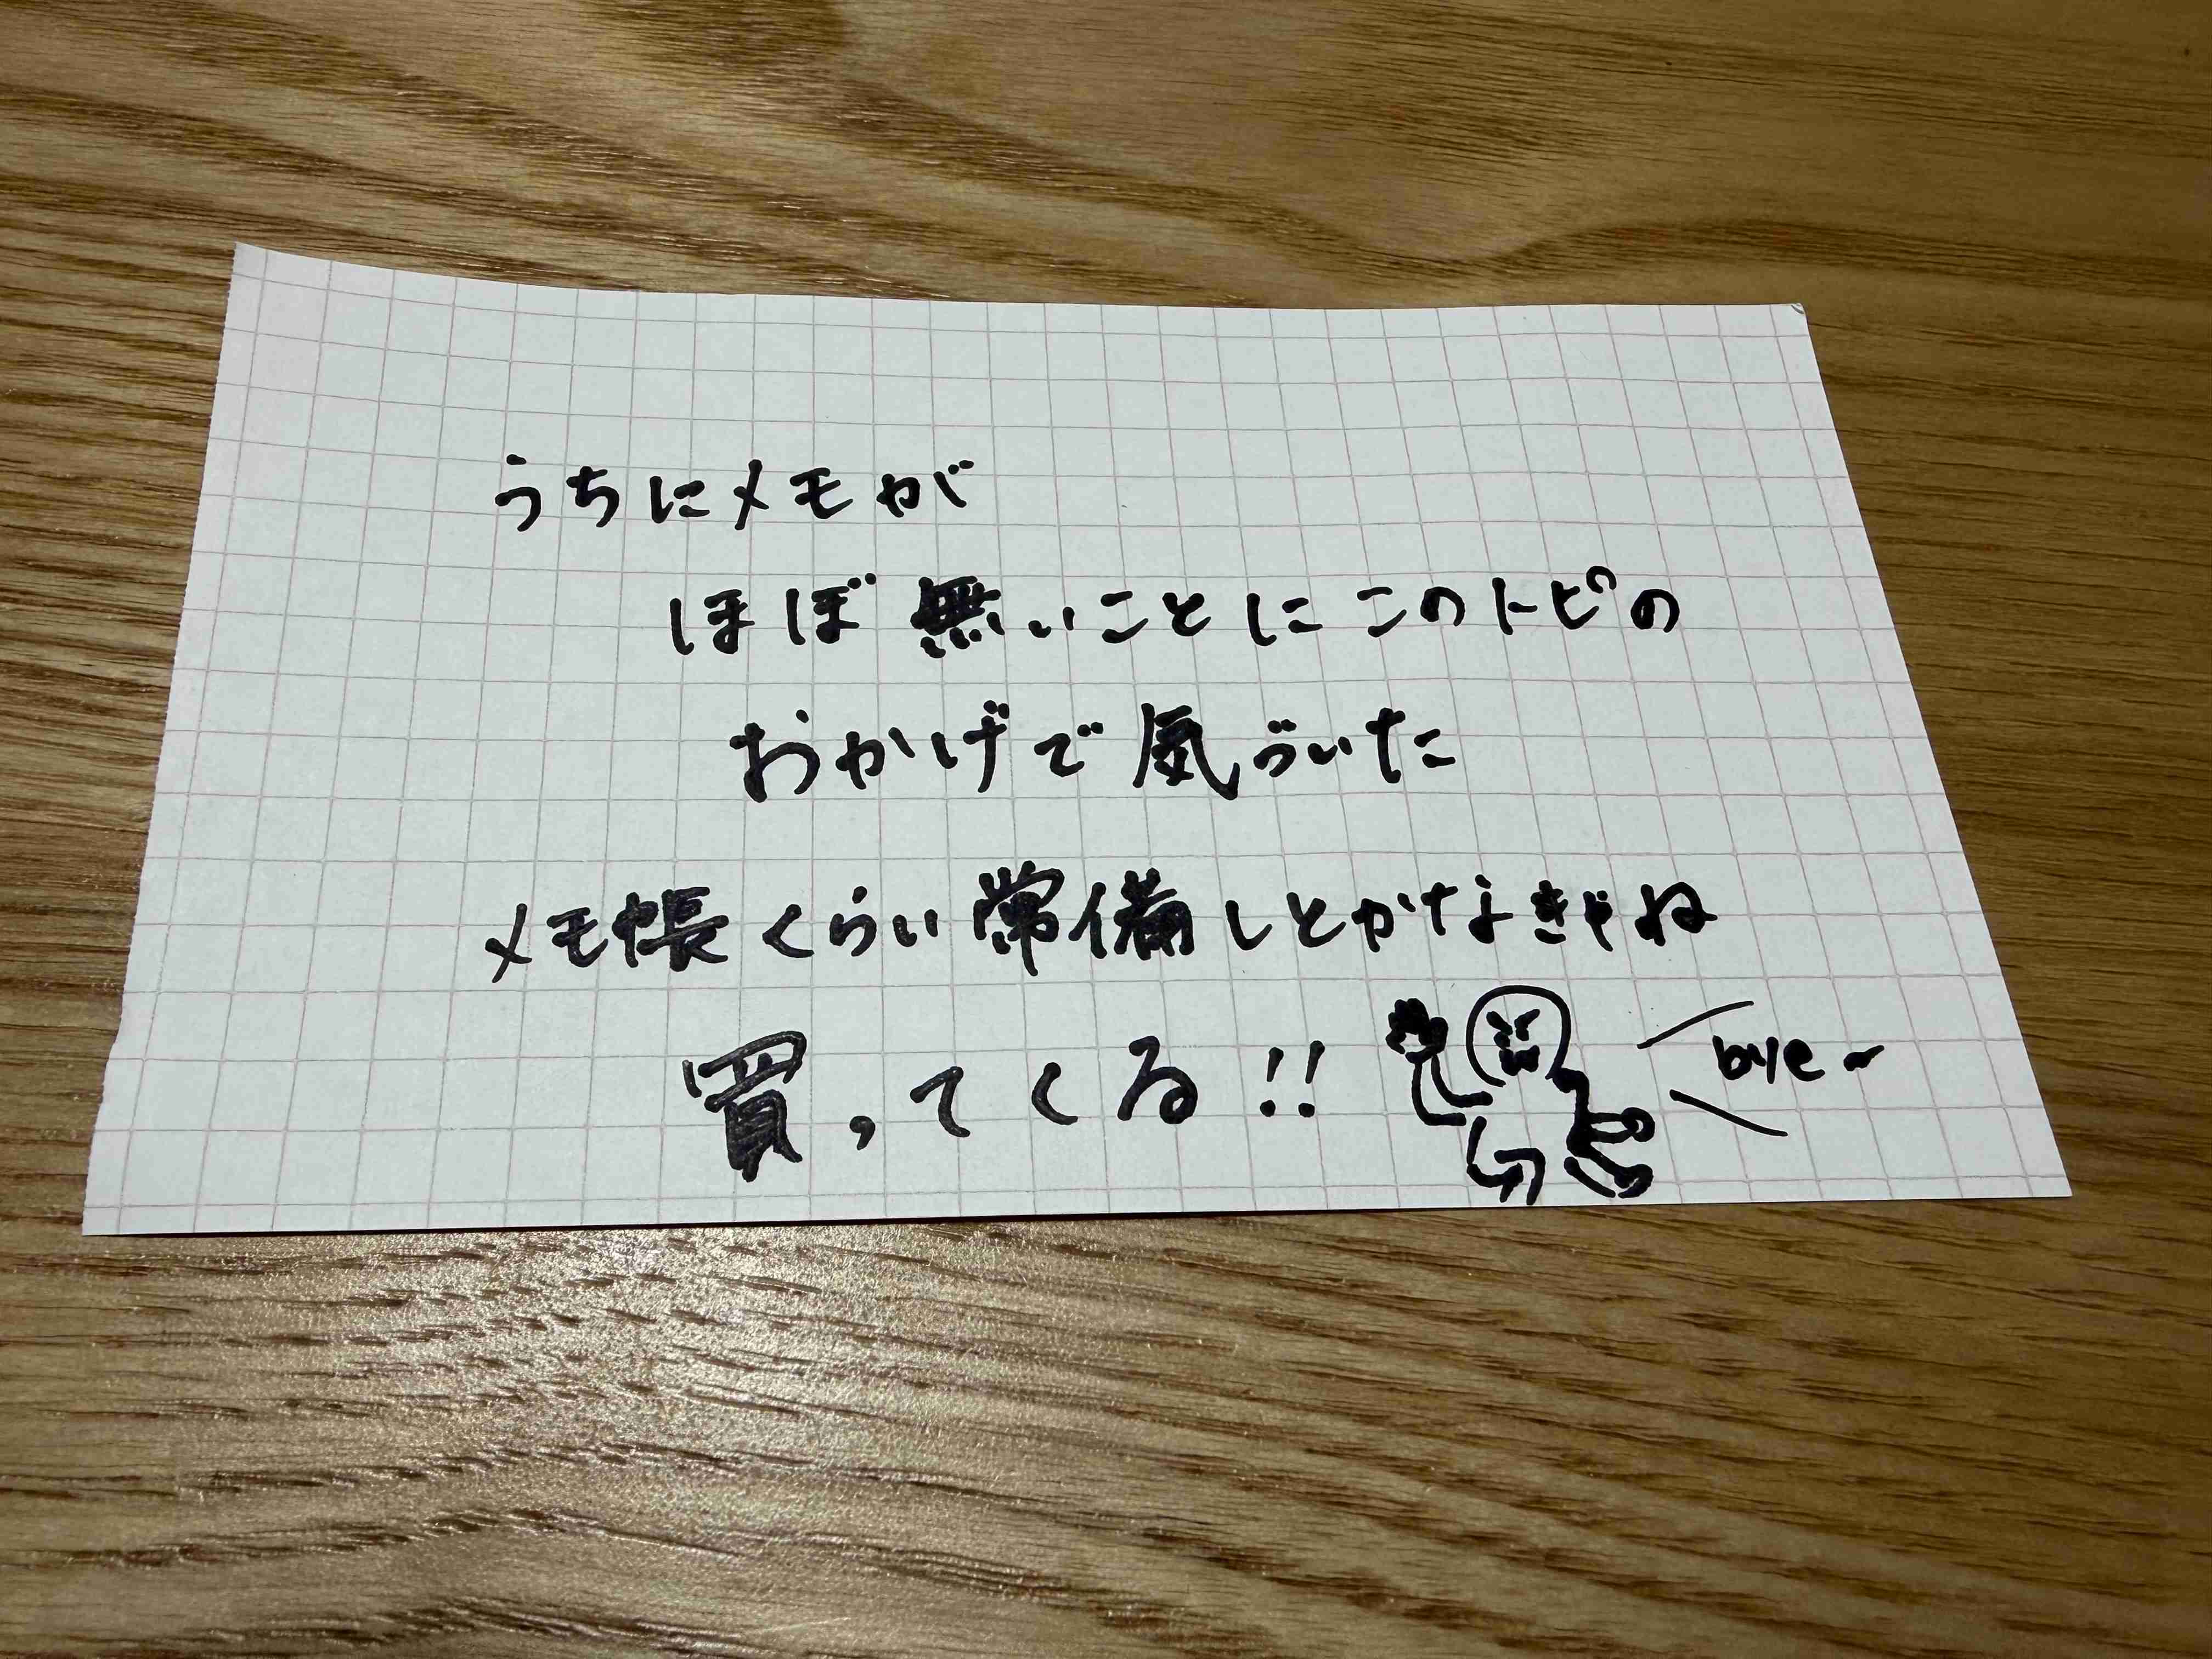 うちにメモが
ほぼ無いことにこのトピの
おかげで気づいた
メモ帳くらい常備しとかなきゃね
買ってくる!!
bye~